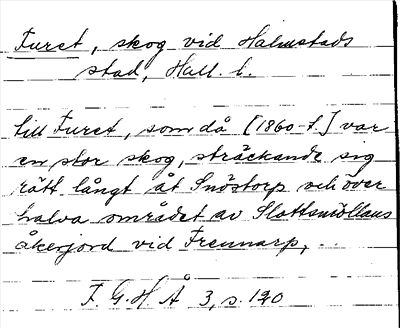 Furet, skog vid Halmstads
stad, Hall. l.
till Furet, som då [1860-t.] var
en stor skog, sträckande sig
rätt långt åt Snöstorp och över
halva området av Slottsmöllans
åkerjord vid Frennarp, ..
F. G. H. Å 3, s. 190